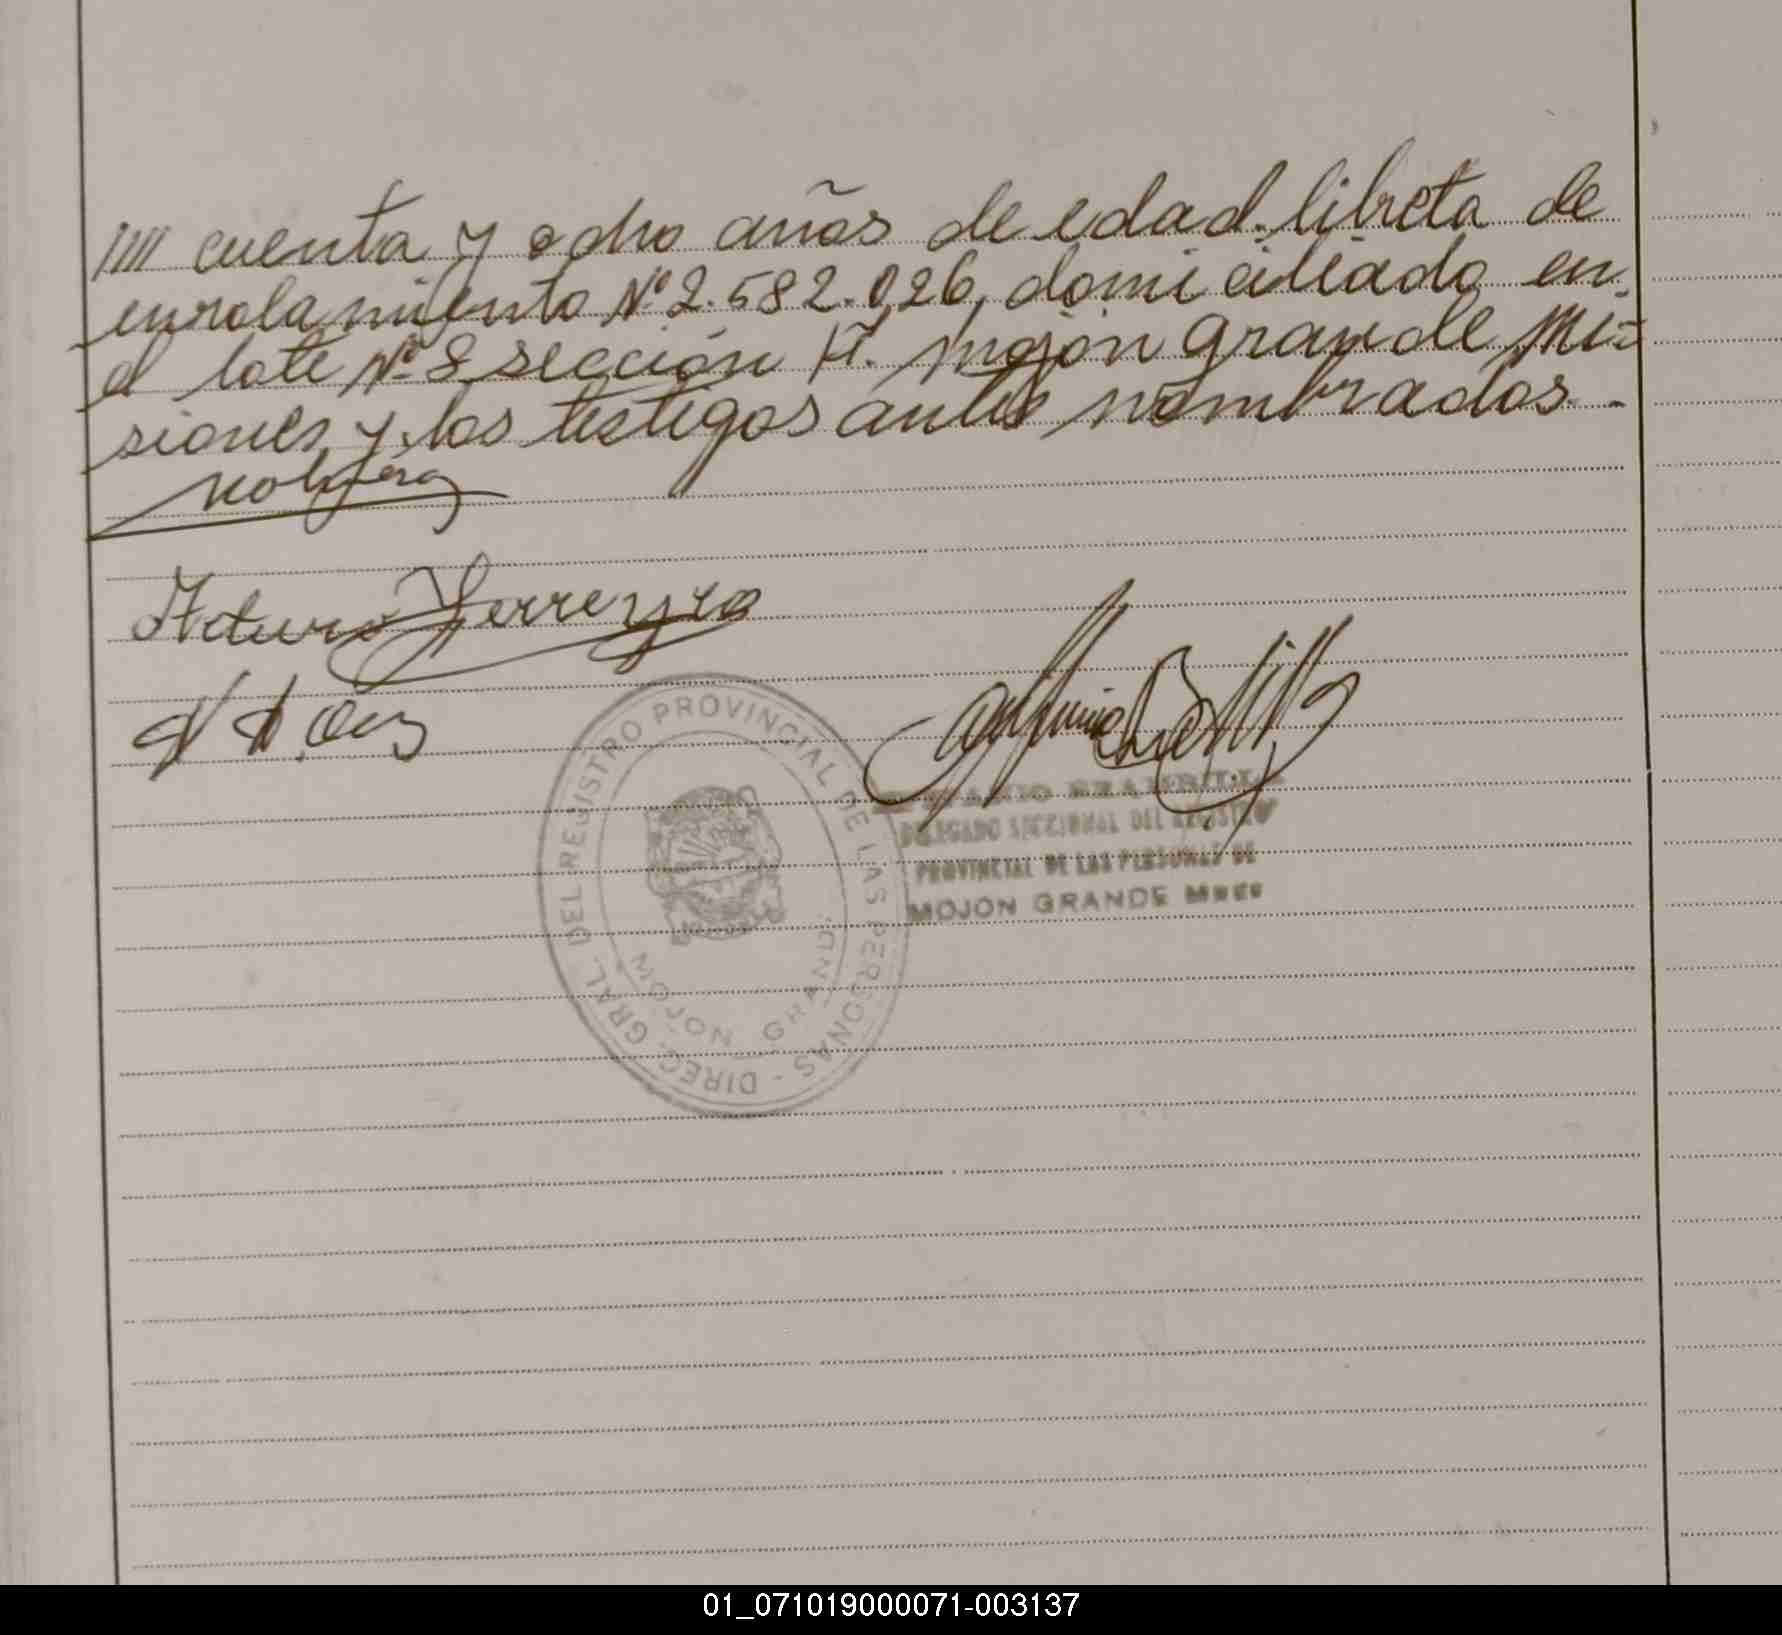 //// cuenta y ocho años de edad. libreta de
enrolamiento Nº 2.582.026, domiciliado en
el lote Nº 8 sección A. mojón grande Mi=
siones y los testigos antes nombrados.-
Arturo Ferreyra
DIREC. GRAL. DEL REGISTRO PROVINCIAL DE LAS PERSONAS -
MOJON GRANDE
DELEGADO SECCIONAL DEL REGISTRO
PROVINCIAL DE LAS PERSONAS DE
MOJON GRANDE
01_071019000071-003137